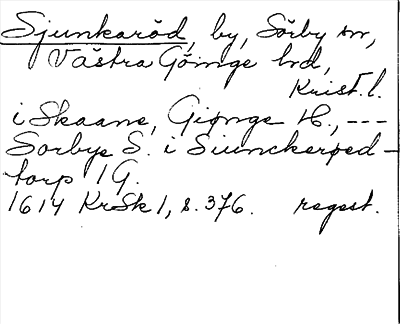 Sjunkaröd, by, Sörby sn,
Västra Göinge hd,
Krist. l.
i Skaane, Giønge H., ---
Sorbye S. i Siunckerøed -
torp 1 G.
1614 KrSk 1, s. 376. regest.